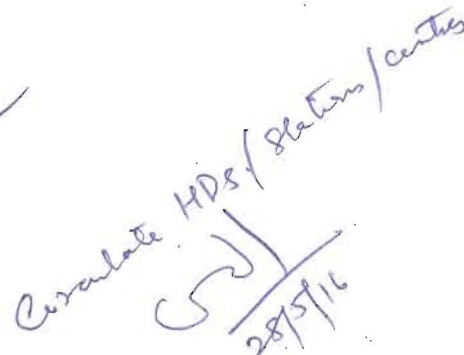 Circulate HDs/Stations/centres
28/5/16